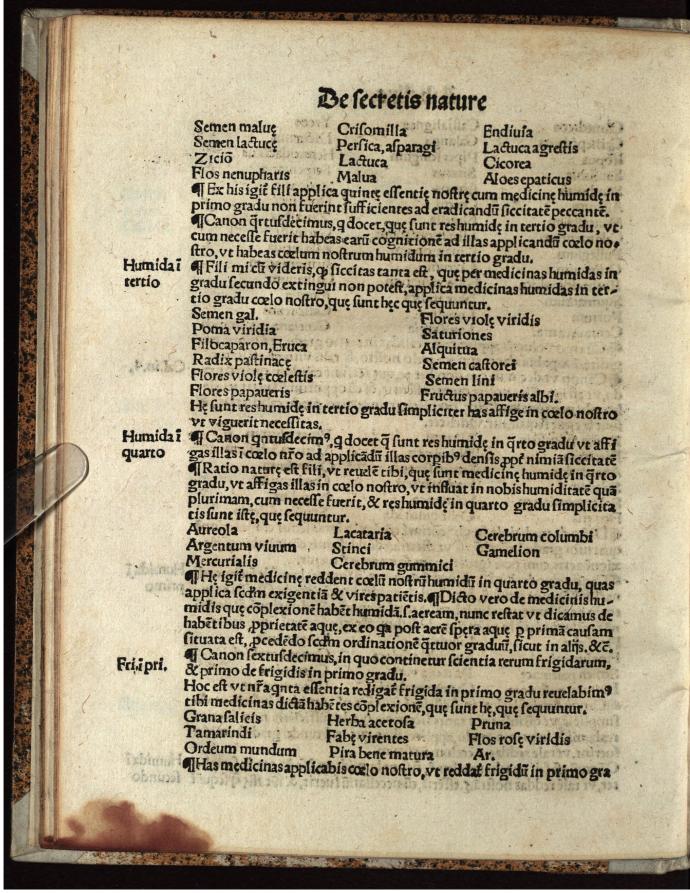 De secretis nature
Semen maluę Crisomilla Endiuia
Semen lactucę Persica, asparagi Lactuca agrestis
Ziciō Lactuca Cicorea
Flos nenupharis Malua Aloes epaticus
¶ Ex his igit̄ fili applica quintę essentię nostrę cum medicinę humidę in
primo gradu non fuerint sufficientes ad eradicandū siccitatē peccantē.
¶ Canon q̄rtusdecimus, q docet, quę sunt res humidę in tertio gradu, vt
cum necesse fuerit habeas earū cognitionē ad illas applicandū cœlo no-
stro, vt habeas cœlum nostrum humidum in tertio gradu.
Humida ī
tertio
¶ Fili mi cū videris, ꝙ siccitas tanta est, quę per medicinas humidas in
gradu secundo extingui non potest, applica medicinas humidas in ter-
tio gradu cœlo nostro, quę sunt hęc quę sequuntur.
Semen gal. Flores violę viridis
Poma viridia Saturiones
Filocaparon, Eruca Alquitua
Radix pastinacę Semen castorei
Flores violę cœlestis Semen lini
Flores papaueris Fructus papaueris albi.
Hę sunt res humidę in tertio gradu simpliciter has affige in cœlo nostro
vt viguerit necessitas.
Humida ī
quarto
¶ Canon q̄ntusdecimꝰ, q docet q̄ sunt res humidę in q̄rto gradu vt affi
gas illas ī cœlo nr̄o ad applicādū illas corpibꝰ densis, ꝓpt̄ nimiā siccitatē
¶ Ratio naturę est fili, vt reuelē tibi, quę sunt medicinę humidę in q̄rto
gradu, vt affigas illas in cœlo nostro, vt influat in nobis humiditatē quā
plurimam, cum necesse fuerit, & res humidę in quarto gradu simplicita
tis sunt istę, quę sequuntur.
Aureola Lacataria Cerebrum columbi
Argentum viuum Stinci Gamelion
Mercurialis Cerebrum gummici
¶ Hę igit̄ medicinę reddent cœlū nostrū humidū in quarto gradu, quas
applica scdm exigentiā & vires patiētis. ¶ Dicto vero de medicinis hu-
midis quę cōplexionē habēt humidā, s. aeream, nunc restat vt dicamus de
habētibus, ꝓprietatē aquę, ex eo qa post aerē spęra aquę ꝑ primā causam
situata est, ꝓcedēdo scdm ordinationē q̄rtuor graduū, sicut in alijs, &c̄.
Fri. ī pri.
¶ Canon sextusdecimus, in quo continetur scientia rerum frigidarum,
& primo de frigidis in primo gradu.
Hoc est vt nr̄a qnta essentia redigat̄ frigida in primo gradu reuelabimꝰ
tibi medicinas dictā habētes cōplexionē, quę sunt hę, quę sequuntur.
Grana salicis Herba acetosa Pruna
Tamarindi Fabę virentes Flos rosę viridis
Ordeum mundum Pira bene matura Ar.
¶ Has medicinas applicabis cœlo nostro, vt reddat̄ frigidū in primo gra